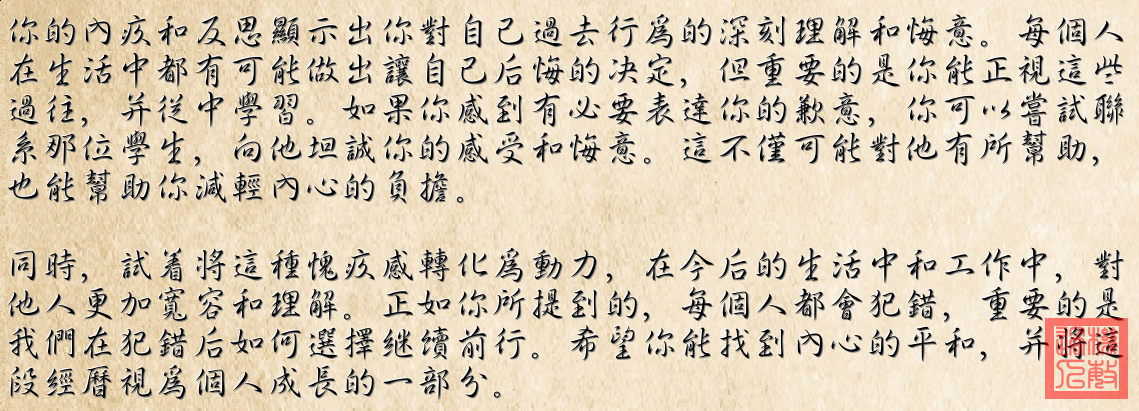 你的內疚和反思顯示出你對自己過去行爲的深刻理解和悔意。每個人
在生活中都有可能做出讓自己后悔的决定，但重要的是你能正視這些
過往，并從中學習。如果你感到有必要表達你的歉意，你可以嘗試聯
系那位學生，向他坦誠你的感受和悔意。這不僅可能對他有所幫助，
也能幫助你減輕內心的負擔。
同時，試着將這種愧疚感轉化爲動力，在今后的生活中和工作中，對
他人更加寬容和理解。正如你所提到的，每個人都會犯錯，重要的是
我們在犯錯后如何選擇继續前行。希望你能找到內心的平和，并將這
段經曆視爲個人成長的一部分。